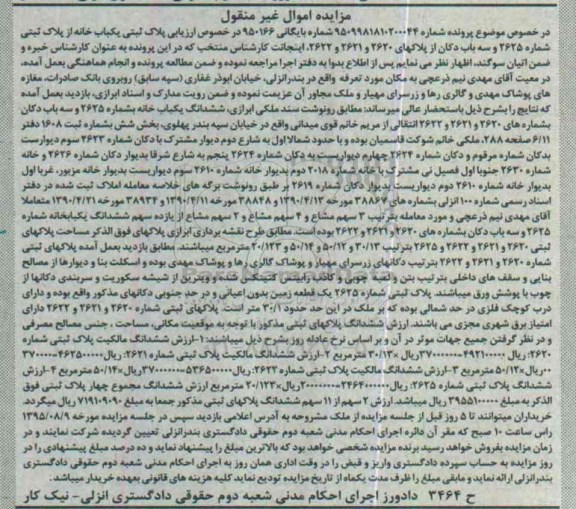 مزایده اموال غیر منقول
در خصوص موضوع پرونده شماره ۹۵۰۹۹۸۱۸۱۰۲۰۰۰۴۴ شماره بایگانی ۹۵۰۱۶۶ در خصوص ارزیابی پلاک ثبتی یکباب خانه از پلاک ثبتی
شماره ۲۶۲۵ و سه باب دکان از پلاکهای ۲۶۲۰ و ۲۶۲۱ و ۲۶۲۲، اینجانب کارشناس منتخب که در این پرونده به عنوان کارشناس خبره و
ضمن اتیان سوگند، اظهار نظر می نمایم پس از اطلاع بدوا به دفتر اجرا مراجعه نموده و ضمن مطالعه پرونده و انجام هماهنگی بعمل آمده،
در معیت آقای مهدی نیم ذرعچی به مکان مورد تعرفه واقع در بندرانزلی، خیابان ابوذر غفاری (سپه سابق) روبروی بانک صادرات، مغازه
های پوشاک مهدی و گالری رها و زرسرای مهیار و ملک مجاور آن عزیمت نموده و ضمن رویت مدارک و اسناد ابرازی، بازدید بعمل آمده
که نتایج را بشرح ذیل باستحضار عالی میرساند: مطابق رونوشت سند ملکی ابرازی، ششدانگ یکباب خانه بشماره ۲۶۲۵ و سه باب دکان
بشماره های ۲۶۲۰ و ۲۶۲۱ و ۲۶۲۲ انتقالی از مریم خانم قوی میدانی واقع در خیابان سپه بندر پهلوی، بخش شش بشماره ثبت ۱۶۰۸ دفتر
۶/۱۱ صفحه ۲۸۸، ملکی خانم شوکت قاسمیان بوده و با حدود شمالا اول به شارع دوم دیوار مشترک با دکان شماره ۲۶۲۳ سوم دیواریست
بدکان شماره مرقوم و دکان شماره ۲۶۲۴ چهارم دیواریست به دکان شماره ۲۶۲۴ پنجم به شارع شرقا بدیوار دکان شماره ۲۶۲۶ و خانه
شماره ۲۶۳۰ جنوبا اول فصیل نی مشترک با خانه شماره ۲۰۱۸ دوم بدیوار خانه شماره ۲۶۱۰ سوم دیواریست بدیوار خانه مزبور، غربا اول
بدیوار خانه شماره ۲۶۱۰ دوم دیواریست بدیوار دکان شماره ۲۶۱۹ بر طبق رونوشت برگه های خلاصه معامله املاک ثبت شده در دفتر
اسناد رسمی شماره ۱۰۰ انزلی بشماره های ۳۸۸۶۷ مورخه ۱۳۹۰/۴/۱۳ و ۳۸۸۴۸ مورخه ۱۳۹۰/۴/۱۱ و ۳۸۹۳۴ مورخه ۱۳۹۰/۴/۲۱ متعاملا
آقای مهدی نیم ذرعچی و مورد معامله بترتیب ۳ سهم مشاع و ۴ سهم مشاع و ۲ سهم مشاع از یازده سهم ششدانگ یکبابخانه شماره
۲۶۲۵ و سه باب دکان بشماره های ۲۶۲۰ و ۲۶۲۱ و ۲۶۲۲ بوده است. مطابق طرح نقشه برداری ابرازی پلاکهای فوق الذکر مساحت پلاکهای
ثبتی ۲۶۲۰ و ۲۶۲۱ و ۲۶۲۲ و ۲۶۲۵ بترتیب ۳۰/۱۳ و ۵۰/۱۲ و ۵۰/۱۴ و ۲۰/۱۲۳ مترمربع میباشند. مطابق بازدید بعمل آمده پلاکهای ثبتی
شماره ۲۶۲۰ و ۲۶۲۱ و ۲۶۲۲ بترتیب دکانهای زرسرای مهیار و پوشاک گالری رها و پوشاک مهدی بوده و اسکلت بنا و دیوارها از مصالح
بنایی و سقف های داخلی بترتیب بتن و لمبه چوبی و کاذب رابیتس کنیتکس شده و ویترین از شیشه سکوریت و سربندی دکانها از
چوب با پوشش ورق میباشند. پلاک ثبتی شماره ۲۶۲۵ یک قطعه زمین بدون اعیانی و در حد جنوبی دکانهای مذکور واقع بوده و دارای
درب کوچک فلزی در حد شمالی بوده که بر ملک در این حد حدود ۳۰/۱ متر است. پلاکهای ثبتی شماره ۲۶۲۰ و ۲۶۲۱ و ۲۶۲۲ دارای
امتیاز برق شهری مجزی می باشند. ارزش ششدانگ پلاکهای ثبتی مذکور با توجه به موقعیت مکانی، مساحت، جنس مصالح مصرفی
و در نظر گرفتن جمیع جهات موثر در آن و بر اساس نرخ عادله روز بشرح ذیل میباشند: ۱-ارزش ششدانگ مالکیت پلاک ثبتی شماره
۲۶۲۰: ریال ۴۹۲۱۰۰۰۰۰۰=۳۷۰۰۰۰۰۰۰ریال×۳۰/۱۳ مترمربع ۲-ارزش ششدانگ مالکیت پلاک ثبتی شماره ۲۶۲۱: ریال ۴۶۲۵۰۰۰۰۰۰=۳۷۰۰۰۰۰
۰۰ریال×۵۰/۱۲ مترمربع ۳-ارزش ششدانگ مالکیت پلاک ثبتی شماره ۲۶۲۲: ریال ۵۳۶۵۰۰۰۰۰۰=۳۷۰۰۰۰۰۰۰ریال×۵۰/۱۴ مترمربع ۴-ارزش
ششدانگ پلاک ثبتی شماره ۲۶۲۵: ریال ۲۴۶۴۰۰۰۰۰۰=۲۰۰۰۰۰۰۰ریال×۲۰/۱۲۳ مترمربع ارزش ششدانگ مجموع چهار پلاک ثبتی فوق
الذکر به مبلغ ریال میباشد. ارزش ۲ سهم از ۱۱ سهم ششدانگ پلاکهای ثبتی مذکور جمعا به مبلغ ریال میگردد.
خریداران میتوانند تا ۵ روز قبل از جلسه مزایده از ملک مشروحه به آدرس اعلامی بازدید سپس در جلسه مزایده مورخه ۱۳۹۵/۰۸/۹
راس ساعت ۱۰ صبح که مقر آن دائره اجرای احکام مدنی شعبه دوم حقوقی دادگستری بندرانزلی تعیین گردیده شرکت نمایند و در
زمان مزایده بفروش خواهد رسید برنده مزایده شخصی خواهد بود که بالاترین مبلغ را پیشنهاد نماید و ده درصد مبلغ پیشنهادی را در
روز مزایده به حساب سپرده دادگستری واریز و قبض را در وقت اداری همان روز به اجرای احکام مدنی شعبه دوم حقوقی دادگستری
بندرانزلی ارائه نماید و مابقی مبلغ را ظرف مدت یکماه از تاریخ مزایده تودیع نماید کلیه هزینه های قانونی بعهده خریدار میباشد.
ح ۳۴۶۴ دادورز اجرای احکام مدنی شعبه دوم حقوقی دادگستری انزلی- نیک کار